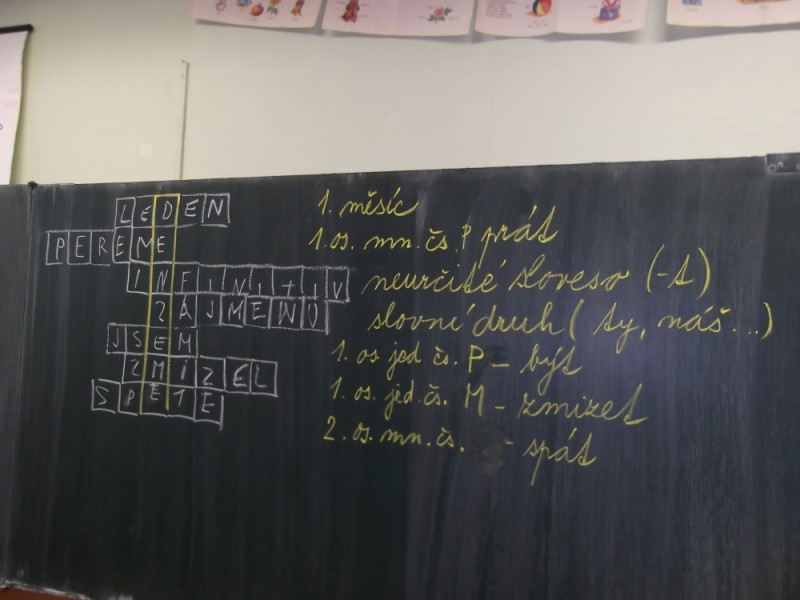 LEDEN 1. měsíc
PEREME 1. os. mn. čs. P prát
INFINITIV neurčité sloveso (-t)
ZÁJMENO slovní druh (ty, náš...)
JSEM 1. os. jed. čs. P - být
ZMIZEL 1. os. jed. čs. M - zmizet
SPÍTE 2. os. mn. čs. - spát